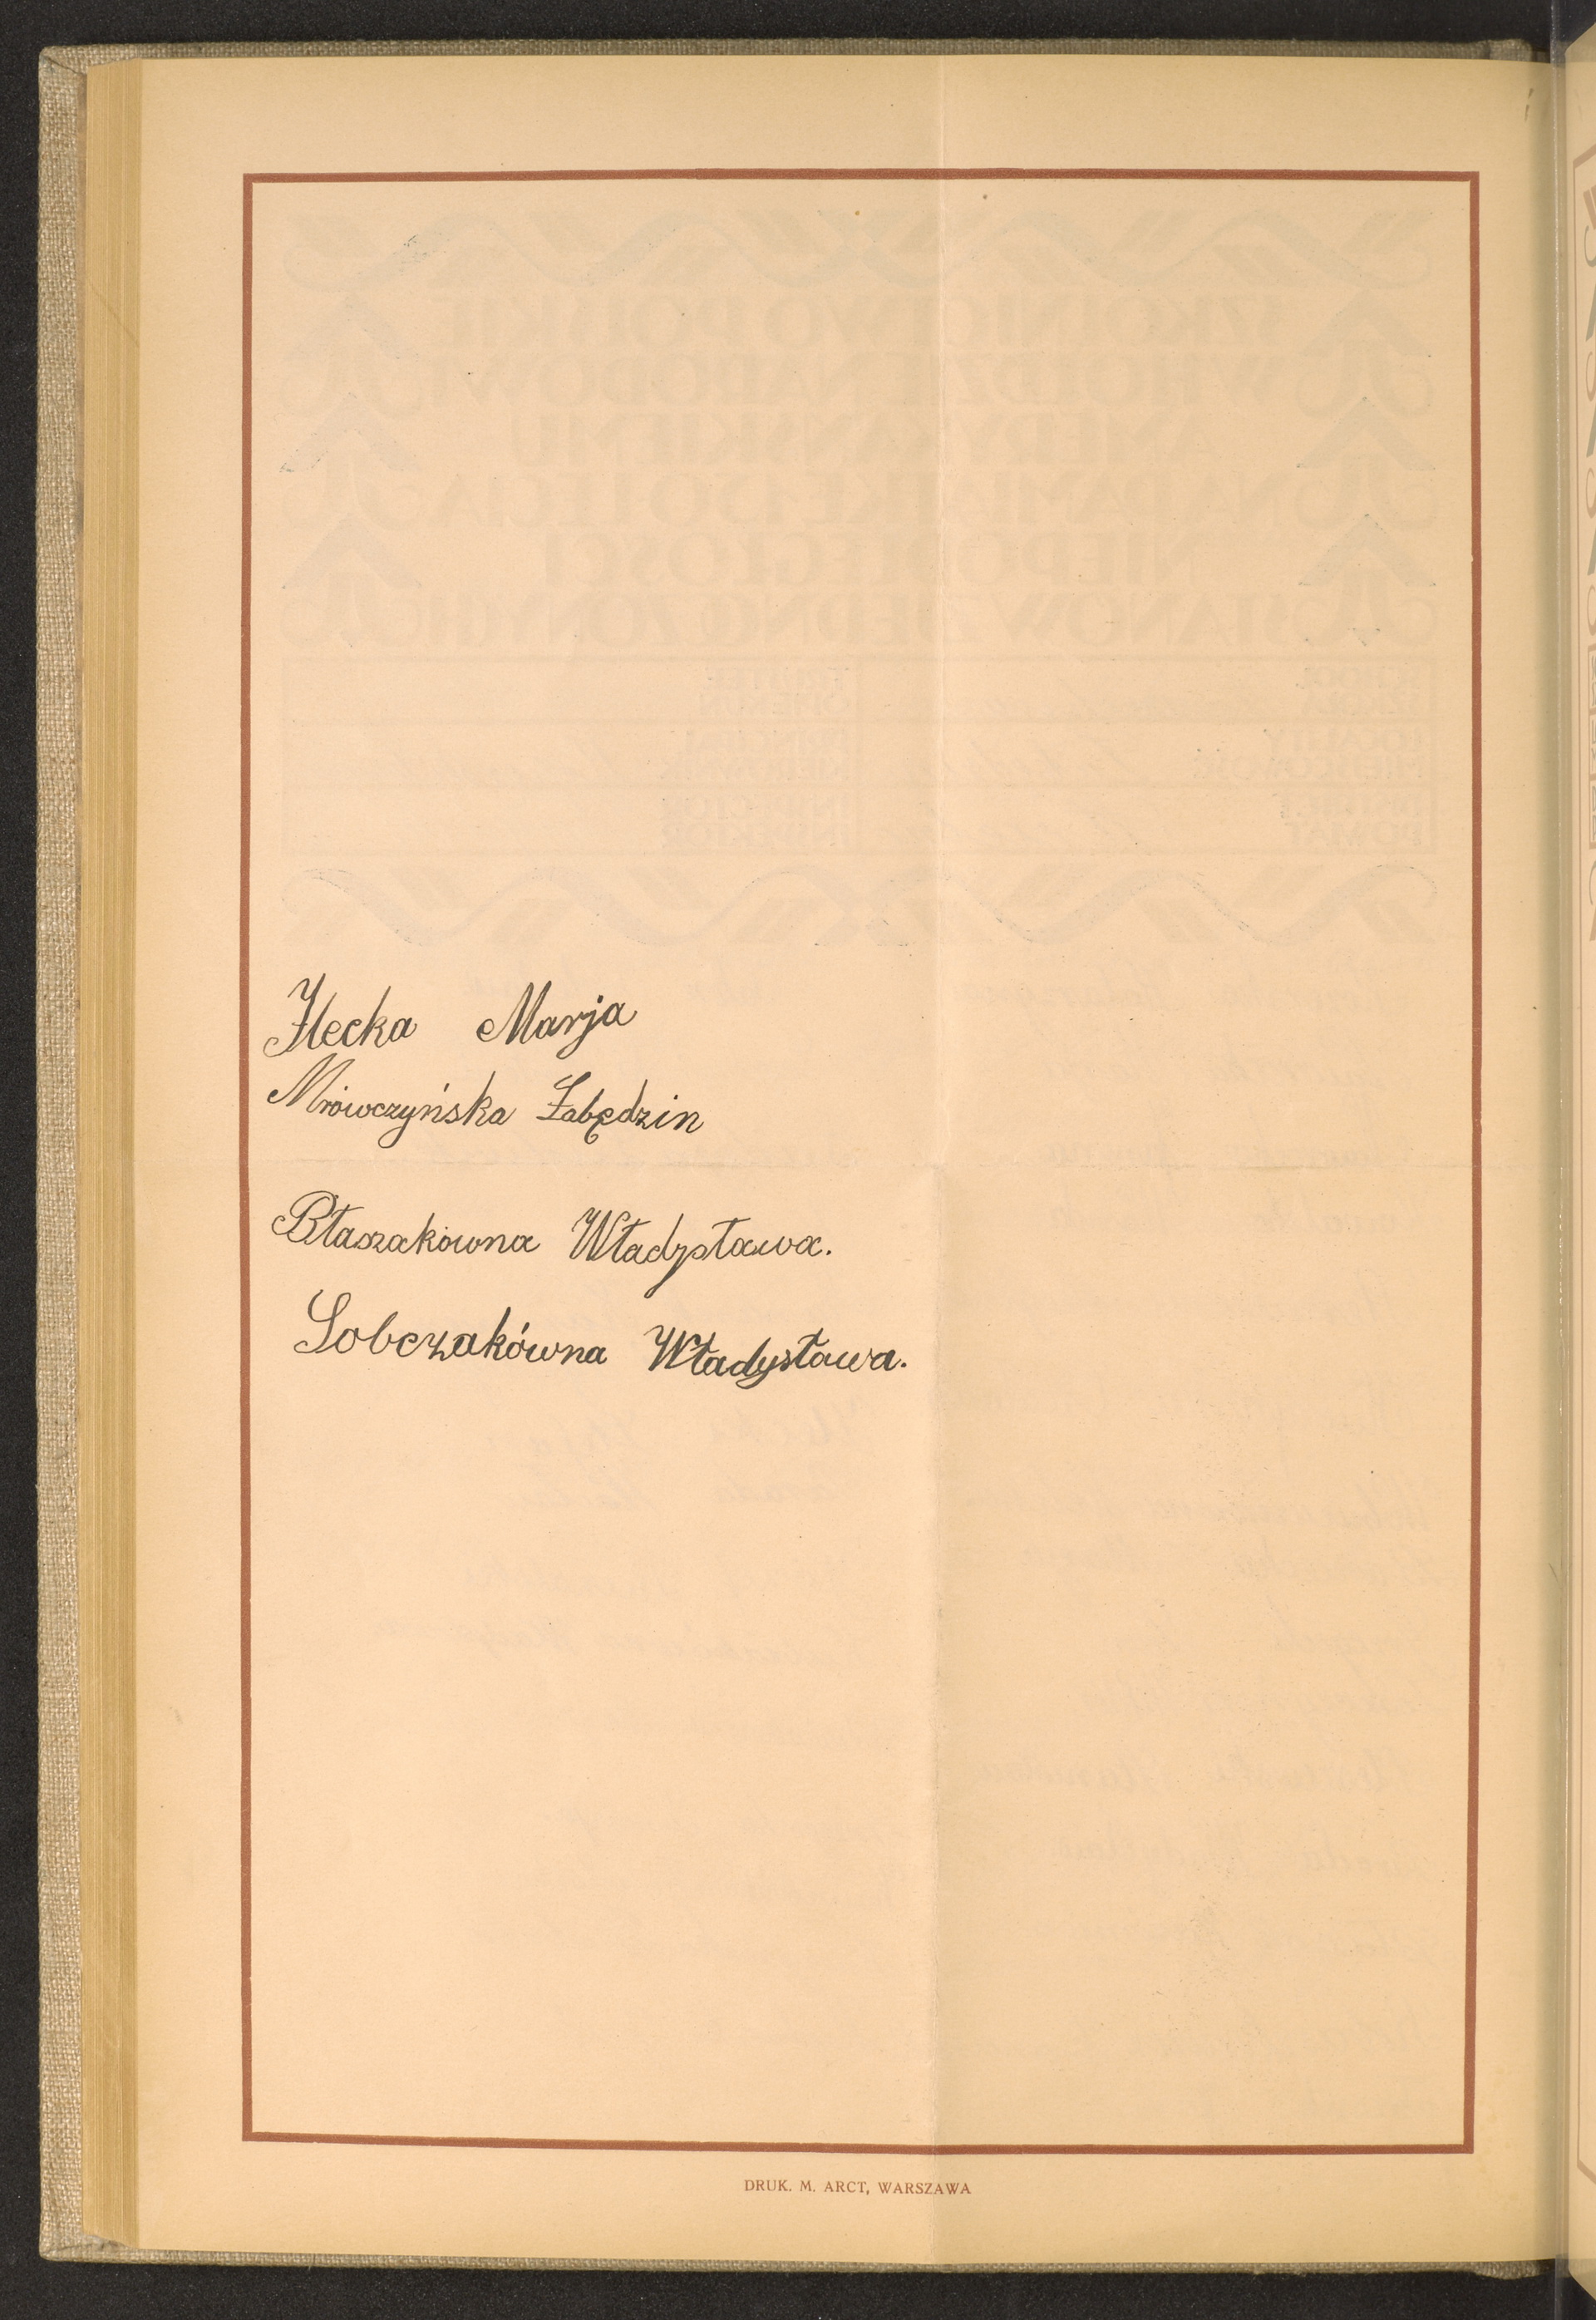 Ilecka Marja
Mrówczyńska Łabędzin
Błaszakówna Władysława.
Sobczakówna Władysława.
DRUK. M. ARCT, WARSZAWA